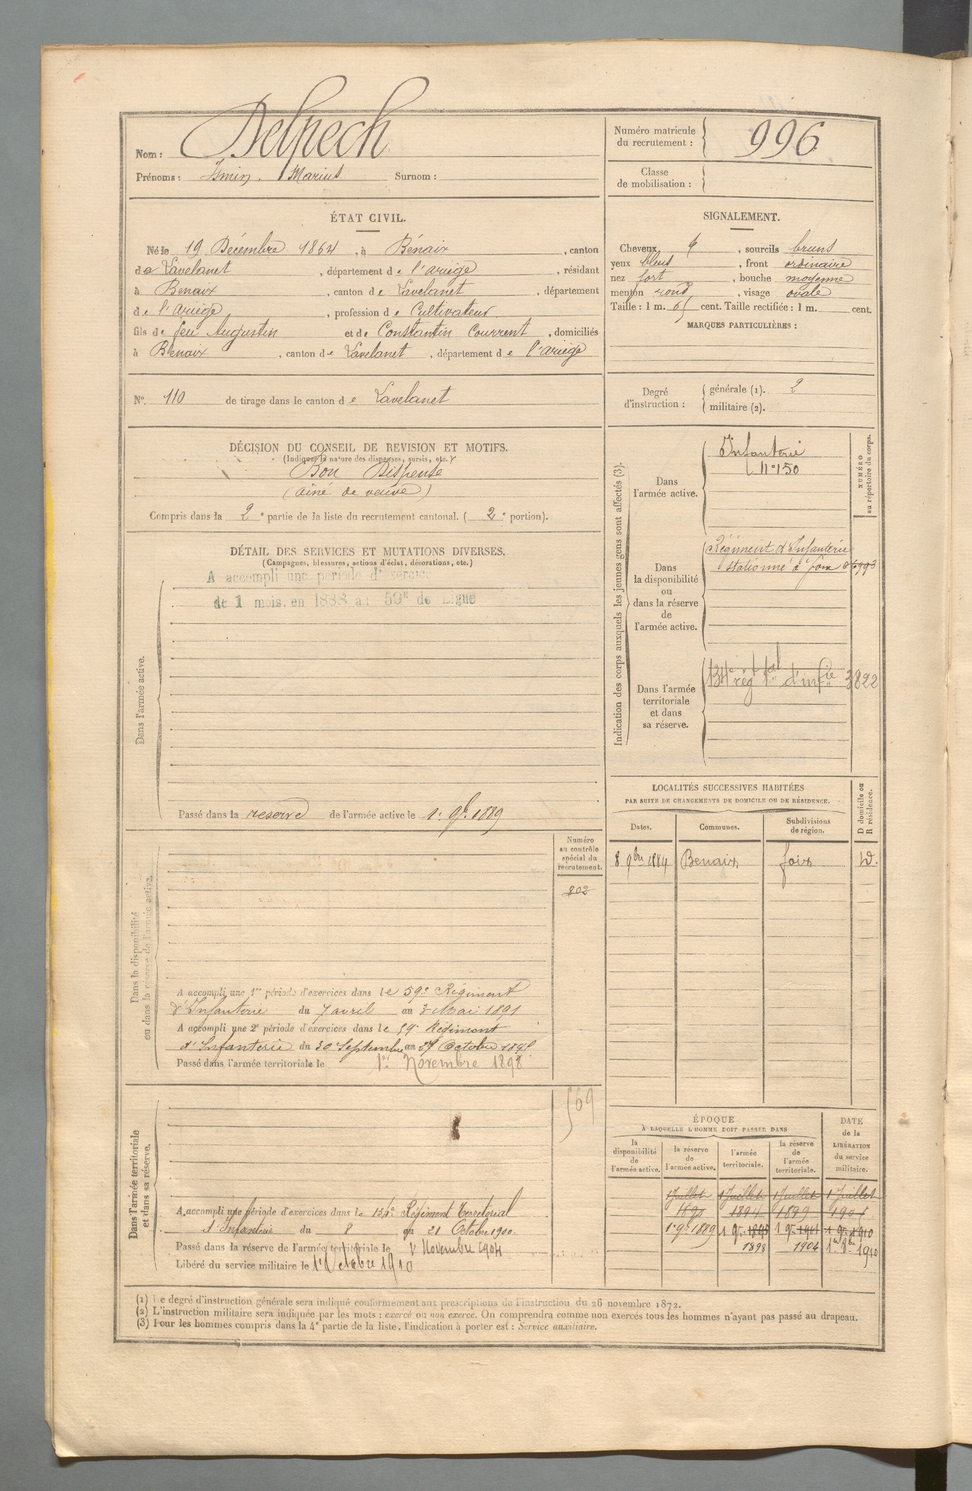 Nom : Delpech
Prénoms : Marius Surnom :
Numéro matricule du recrutement : 996
Classe de mobilisation :
ÉTAT CIVIL.
Né le 19 Décembre 1864, à Bénaix, canton
de Lavelanet, département de l'ariège, résidant
à Benaix, canton de Lavelanet, département
de l'ariège, profession de Cultivateur
fils de feu Augustin et de Constantin Courrent, domiciliés
à Benaix, canton de Lavelanet, département de l'ariège
N° 110 de tirage dans le canton de Lavelanet
SIGNALEMENT.
Cheveux, sourcils bruns
yeux bleus, front ordinaire
nez fort, bouche moyenne
menton rond, visage ovale
Taille : 1 m. 65 cent. Taille rectifiée : 1 m. cent.
MARQUES PARTICULIÈRES :
Degré d'instruction : générale (1). 2
militaire (2).
DÉCISION DU CONSEIL DE REVISION ET MOTIFS.
(Indiquer la nature des dispenses, sursis, etc.)
Bon Dispensé
(ainé de veuve)
Compris dans la 2e partie de la liste du recrutement cantonal. (2e portion).
DÉTAIL DES SERVICES ET MUTATIONS DIVERSES.
(Campagnes, blessures, actions d'éclat, décorations, etc.)
Dans l'armée active.
A accompli une période d'exercice
de 1 mois. en 1888 au 59e de Ligne
Passé dans la reserve de l'armée active le 1er 9bre 1889
Indication des corps auxquels les jeunes gens sont affectés (3).
NUMÉRO au répertoire du corps.
Dans l'armée active.
Infanterie
n° 150
Dans la disponibilité ou dans la réserve de l'armée active.
Régiment d'Infanterie
stationné à foix
Dans l'armée territoriale et dans sa réserve.
134e rég tal d'infie 3822
LOCALITÉS SUCCESSIVES HABITÉES
PAR SUITE DE CHANGEMENTS DE DOMICILE OU DE RÉSIDENCE.
D domicile ou R résidence.
Dates. Communes. Subdivisions de région.
8 9bre 1884 Benaix foix D.
Dans la disponibilité ou dans la réserve de l'armée active.
Numéro au contrôle spécial du recrutement.
802
A accompli une 1re période d'exercices dans le 59e Régiment
d'Infanterie du 7 avril au 3 Mai 1891
A accompli une 2e période d'exercices dans le 59e Régiment
d'Infanterie du 30 Septembre au 27 Octobre
Passé dans l'armée territoriale le 1er Novembre 1898
Dans l'armée territoriale et dans sa réserve.
569
A accompli une période d'exercices dans le 134e Régiment Territorial
d'Infanterie du 8 au 21 Octobre 1900
Passé dans la réserve de l'armée territoriale le 1er Novembre 1904
Libéré du service militaire le 1er Octobre 1910
ÉPOQUE
À LAQUELLE L'HOMME DOIT PASSER DANS
DATE de la LIBÉRATION du service militaire.
la disponibilité de l'armée active. la réserve de l'armée active. l'armée territoriale. la réserve de l'armée territoriale.
1 Juillet 1 Juillet 1 Juillet 1 Juillet
1890 1894 1899 1904
1er 9bre 1889
1898 1904 1910
(1) Le degré d'instruction générale sera indiqué conformément aux prescriptions de l'instruction du 26 novembre 1872.
(2) L'instruction militaire sera indiquée par les mots : exercé ou non exercé. On comprendra comme non exercés tous les hommes n'ayant pas passé au drapeau.
(3) Pour les hommes compris dans la 4e partie de la liste, l'indication à porter est : Service auxiliaire.